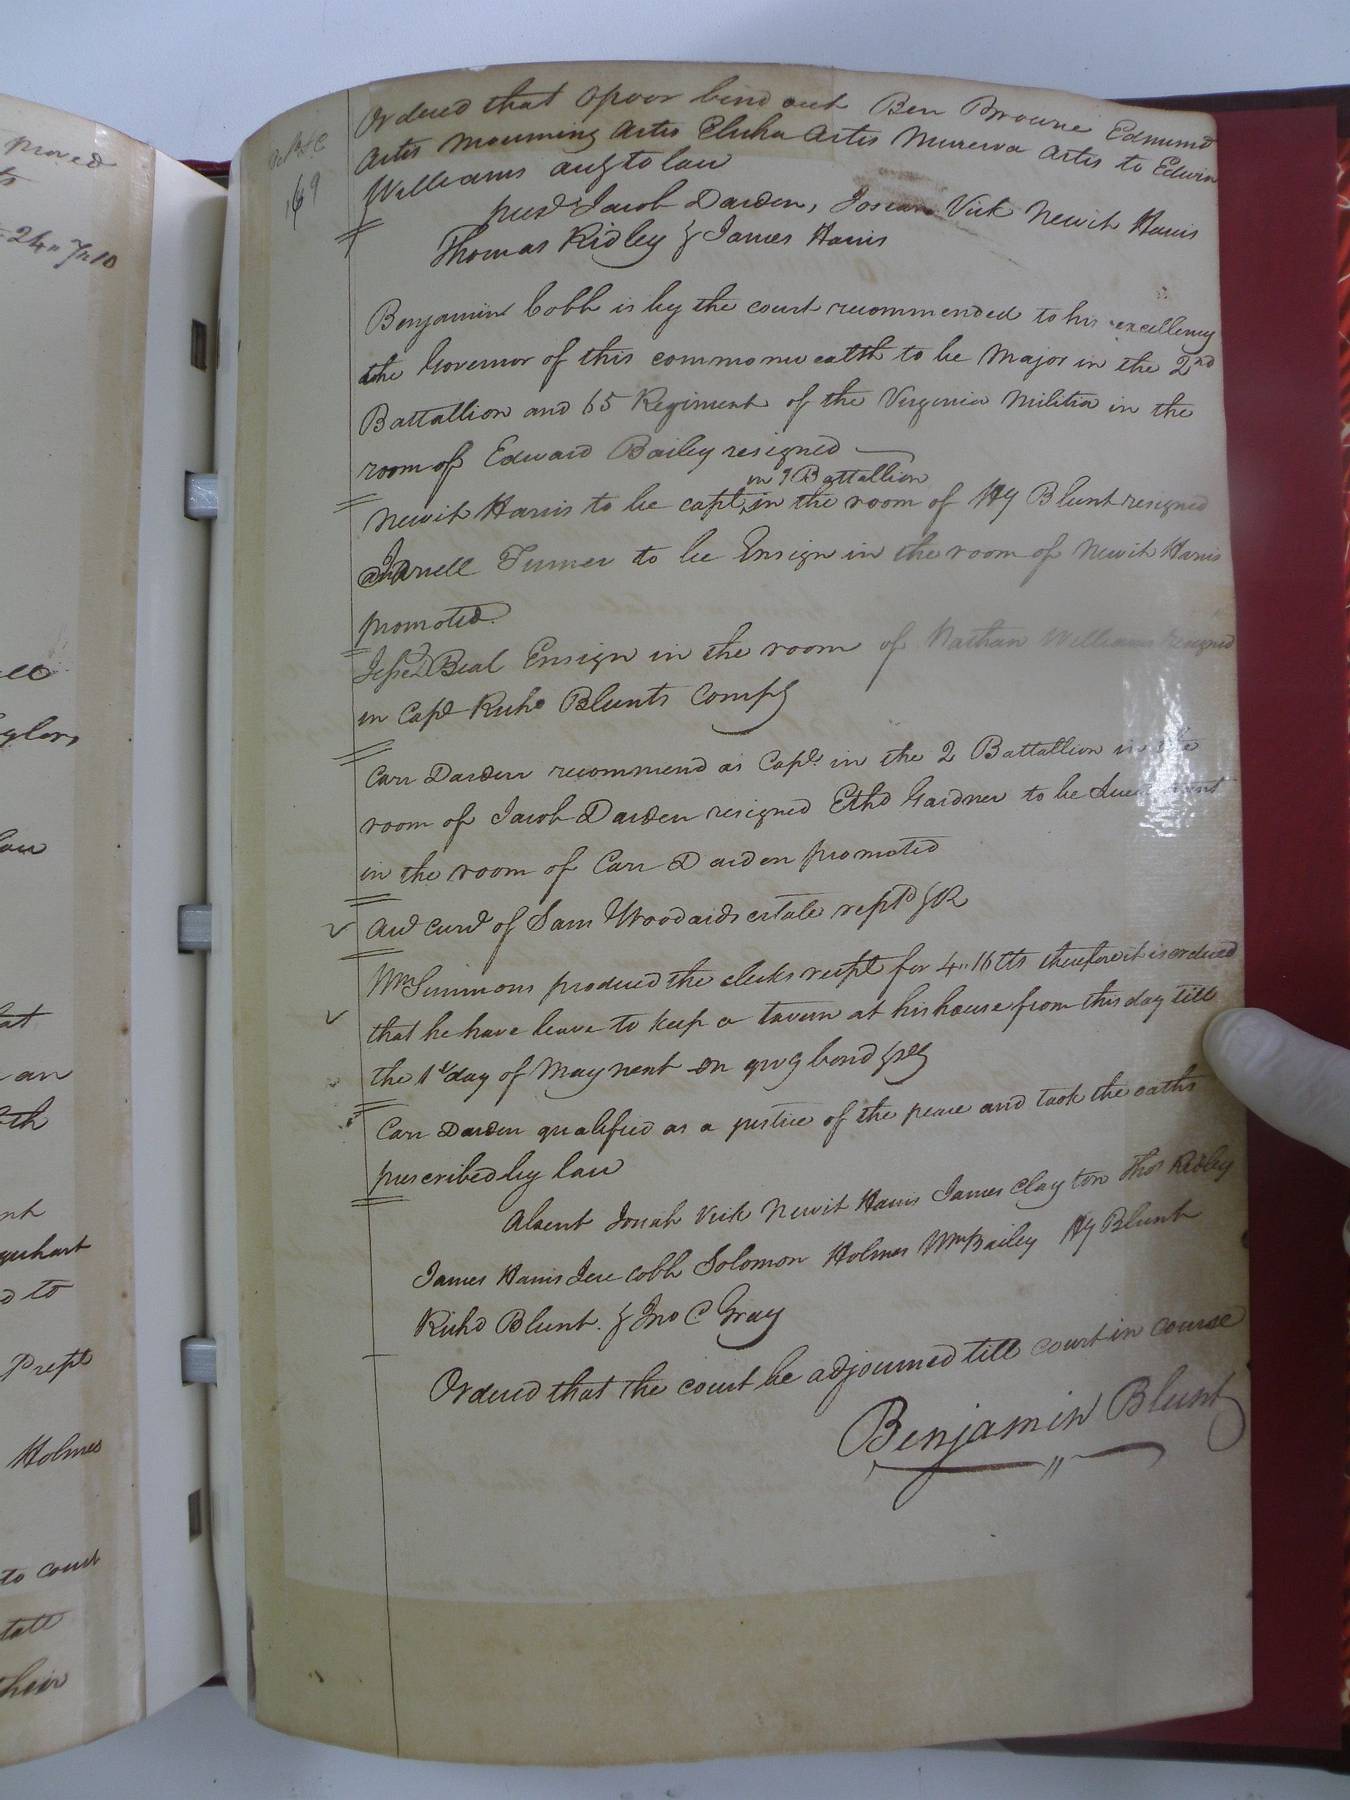 proved
24 " 7 " 10
169
Ordered that Opoor bind out Ben Browne Edmund
Artis Mourning Artis Elisha Artis Minerva Artis to Edwin
Williams acg to law
prest Jacob Darden, Josiah Vick Newit Harris
Thomas Ridley & James Harris
Benjamin Cobb is by the court recommended to his excellency
the Governor of this commonwealth to be Major in the 2nd
Battallion and 65 Regiment of the Virginia Militia in the
room of Edward Bailey resigned
in 1 Battallion
Newit Harris to be capt in the room of Hy Blunt resigned
Turner to be Ensign in the room of Newit Harris
promoted.
Jesse Beal Ensign in the room of Nathan Williams resigned
in Capt Richd Blunts Compy
Carr Darden recommend as Capt. in the 2 Battallion in the
room of Jacob Darden resigned Ethd Gardner to be
in the room of Carr Darden promoted
Aud curt of Sam Woodards estate reptd & R
Wm Simmons produced the clerks recpt for 4 " 16 tts therefore it is ordered
that he have leave to keep a tavern at his house from this day till
the 1st day of May next on givg bond &c
Carr Darden qualified as a justice of the peace and took the oaths
prescribed by law
Absent Josiah Vick Newit Harris James Clayton Thos Ridley
James Harris Jere Cobb Solomon Holmes Wm Bailey Hy Blunt
Richd Blunt. & Jno C Gray
Ordered that the court be adjourned till court in course
Benjamin Blunt
an
d to
Prept
Holmes
to court
their